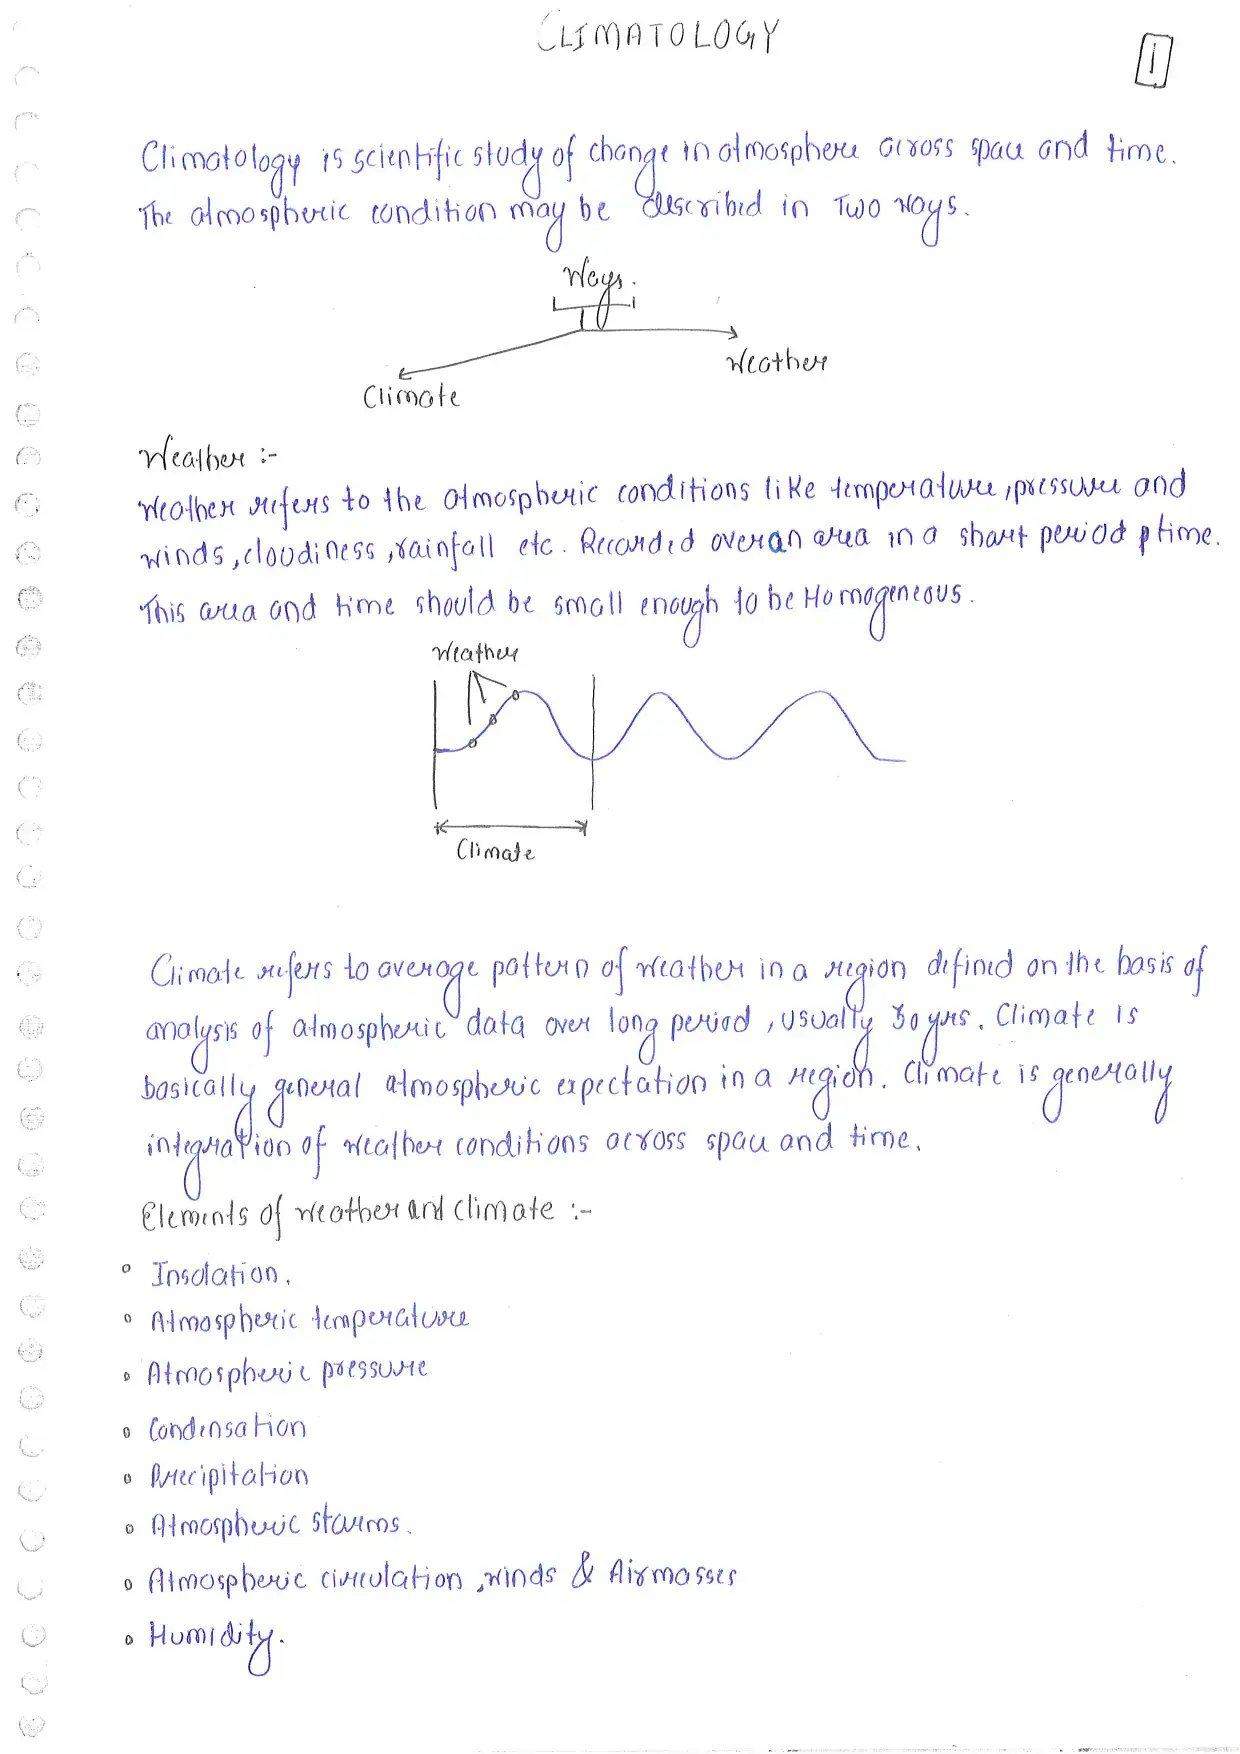 CLIMATOLOGY
1
Climatology is scientific study of change in atmosphere across space and time.
The atmospheric condition may be described in Two ways.
Ways.
Weather
Climate
Weather :-
Weather refers to the atmospheric conditions like temperature, pressure and
winds, cloudiness, rainfall etc. Recorded over an area in a short period of time.
This area and time should be small enough to be Homogeneous.
Weather
Climate
Climate refers to average pattern of weather in a region defined on the basis of
analysis of atmospheric data over long period, usually 30 yrs. Climate is
basically general atmospheric expectation in a region. Climate is generally
integration of weather conditions across space and time.
Elements of weather and climate :-
Insolation.
Atmospheric temperature
Atmospheric pressure
Condensation
Precipitation
Atmospheric storms.
Atmospheric circulation, winds & Airmasses
Humidity.